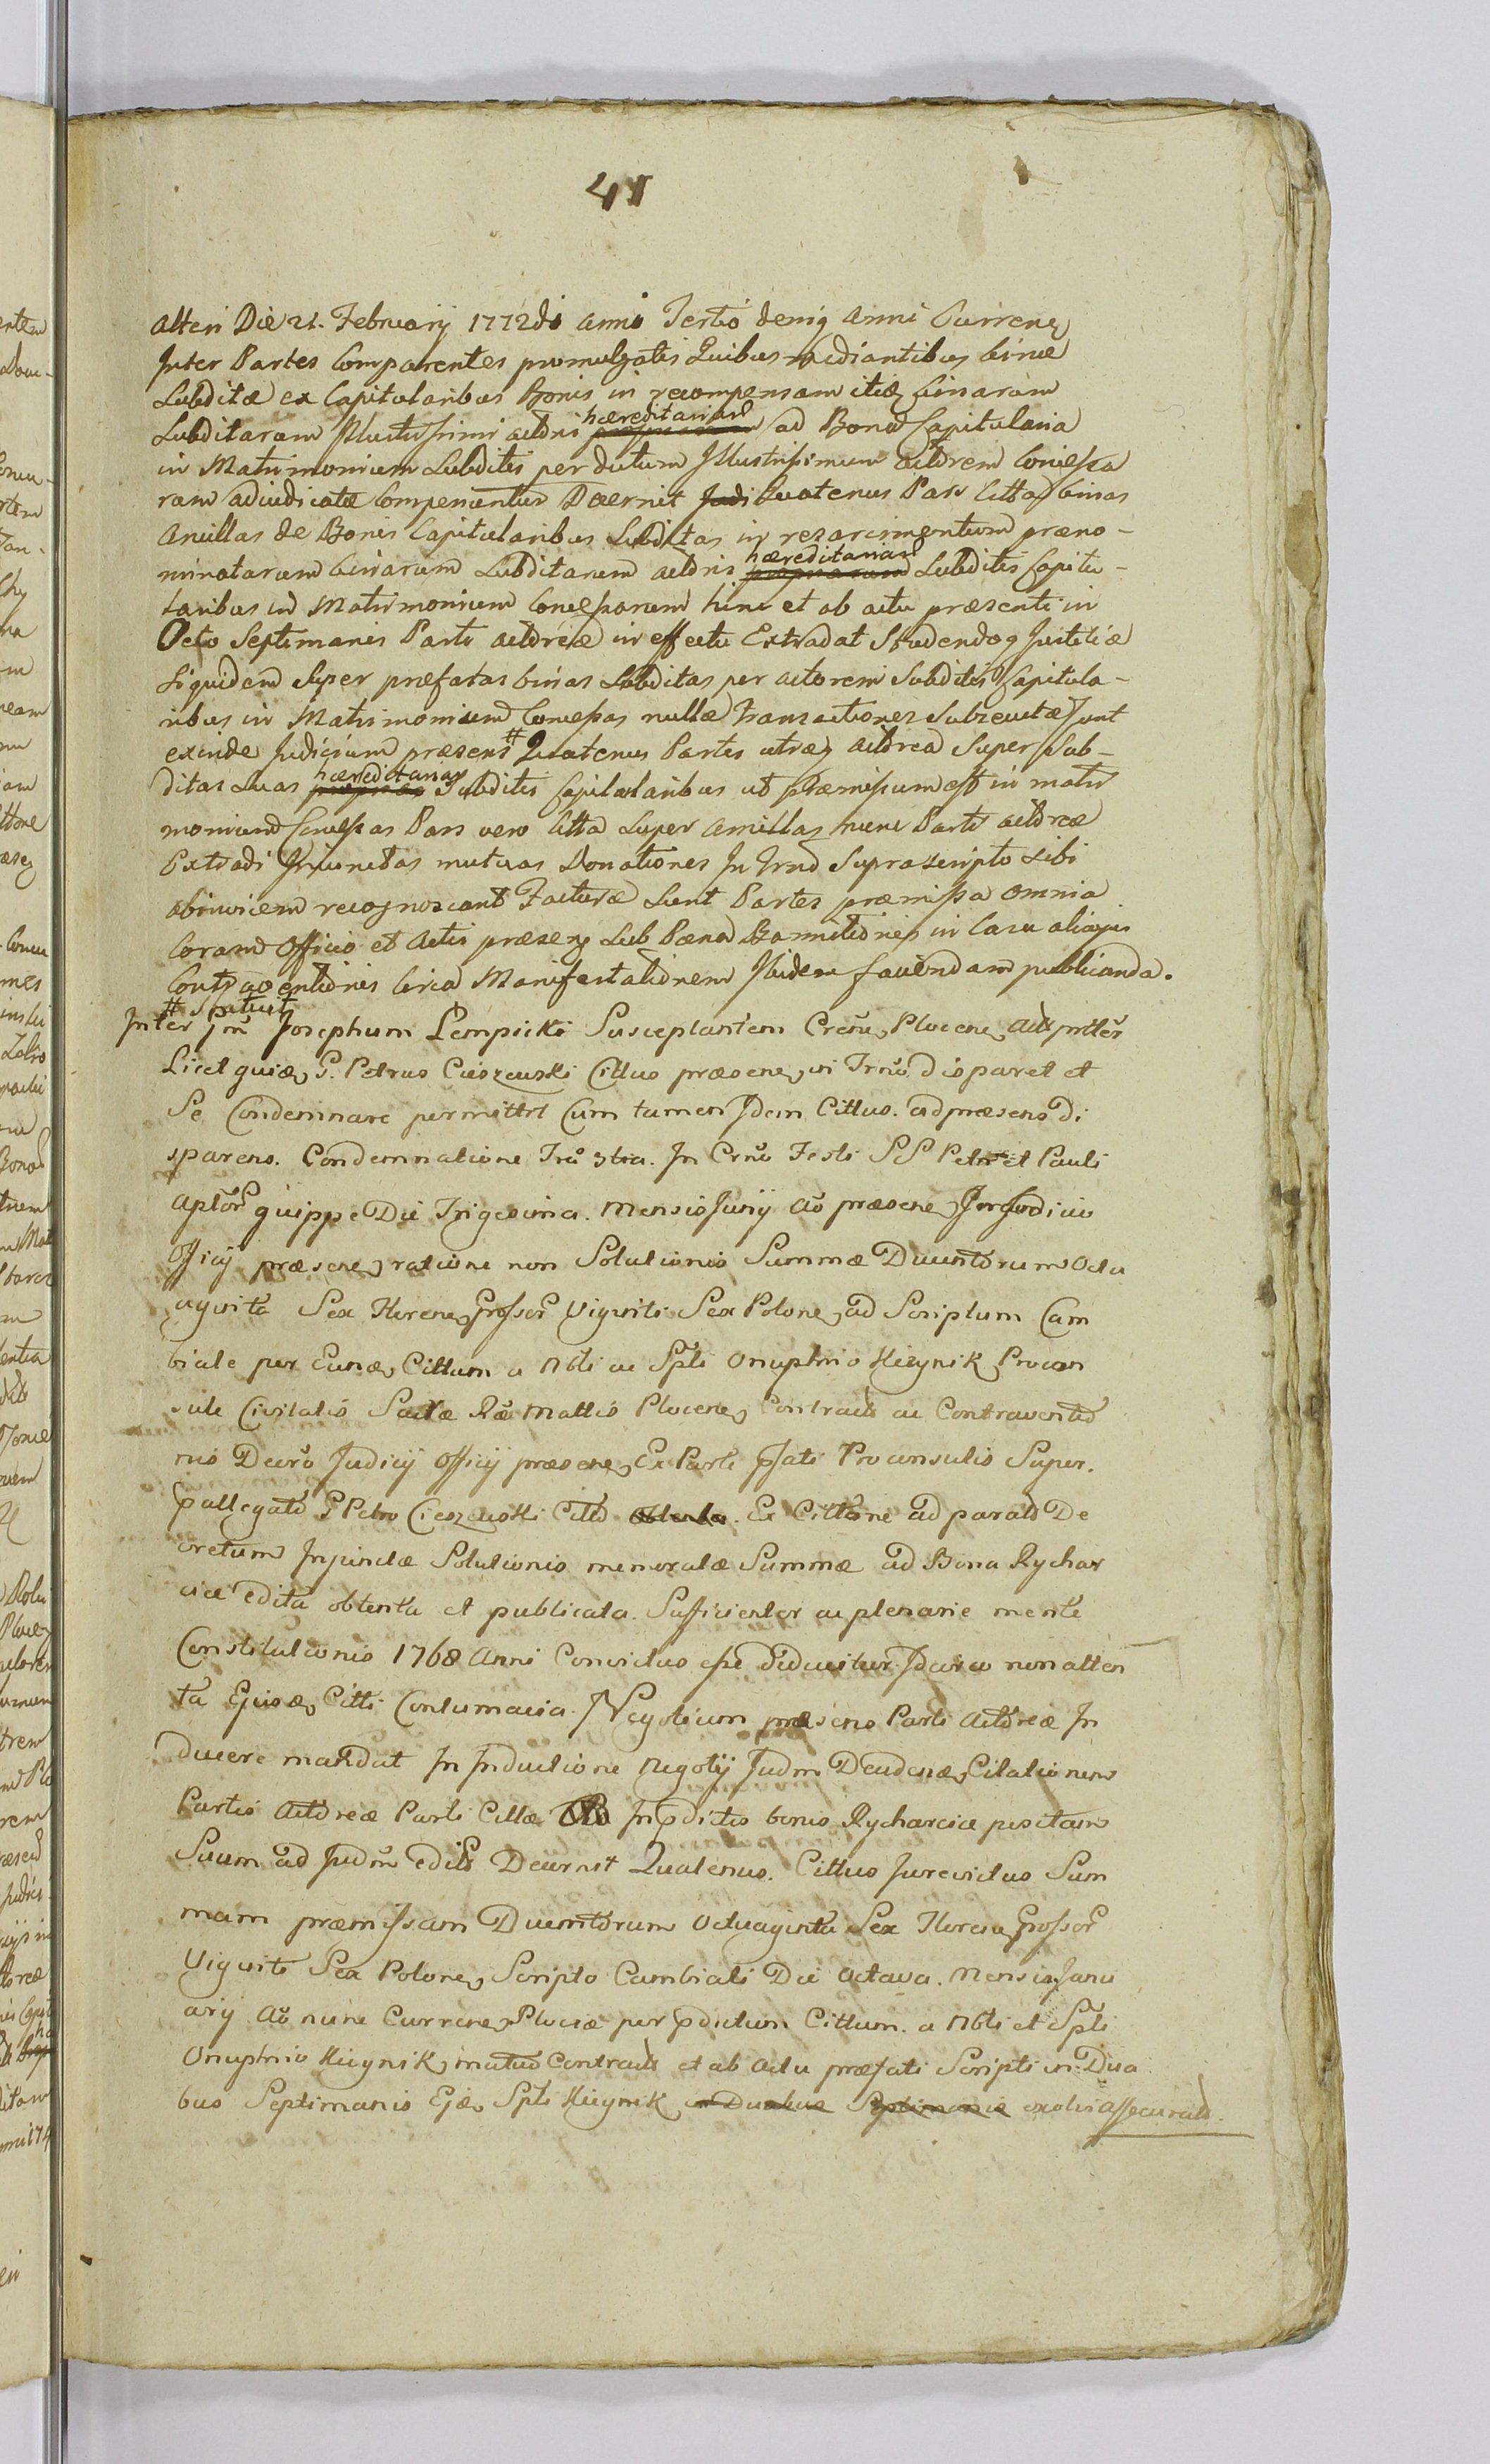 41
alteri Die 21. Februarij 1772di anni Tertio deniq Anni Currene
Inter Partes Comparentes promulgatis Quibus mediantibus binæ
Subditæ ex Capitularibus Bonis in recompensam itidq binarum
Subditarum Illustrissimi actoris hæreditariarum ad Bona Capitularia
in Matrimonium Subditis per dictum Illustrissimum actorem Concessa
rum adiudicatæ Compensantur Decernit Judi Quatenus Pars Citta binas
Ancillas de Bonis Capitularibus Subditas in resarcimentum præno-
minatarum binarum Subditarum actoris hæreditariarum Subditis Capitu-
laribus in Matrimonium Concessarum hinc et ab actu præsenti in
Octo Septimanis Parti actoreæ in effectu Extradat Studendoq Justitiæ
Siquidem Super præfatas binas Subditas per actorem Subditis Capitula-
ribus in Matrimonium Concessas nullæ transactiones Subsecutæ sunt
exinde Judicium præsens # Quatenus Partes utræq actorea Super Sub-
ditas Suas hæreditarias Subditis Capitularibus ut præmissum est in matri
monium Concessas Pars vero Citta Super Ancillas nunc Parti actoreæ
Extradi Injunctas mutuas Donationes In Trno Suprascripto Sibi
abinvicem recognoscant Facturæ Sunt Partes præmissa omnia
Coram Officio et Actis præsenq Sub Pæna Bannitionis in Casu alicujus
Contraventionis Circa Manifestationem Ibidem faciendam publicanda.
# statuit
Inter Gm Josephum Lempicki Susceptantem Crenu Plocene Actprtles
Licet quide G. Petrus Cieszewski Cittus præsene in Trno disparet et
Se Condemnare permittit Cum tamen Idem Cittus. ad præsens di
sparens. Condemnatione Tru stra. In Crnu Festi SS Petri et Pauli
aptor quippe Die Trigesima. Mensis Junij Ao præsene In Judicio
Officij præsene ratione non Solutionis Summæ Ducentorum Octu
aginta Sex Florene Grossor Viginti Sex Polone ad Scriptum Cam
biale per Eund Cittum a Nbli ac Spli Onuphrio Kiezynik Procon
sule Civitatis Sacræ Ræ Mattis Plocene Contracto ac Contraventio
nis Decro Judicij Officij præsene Ex Parte pfati Proconsulis Super.
pallegato G Petro Cieszewski Citto obtento. Ex Cittone ad parato De
cretum Injunctæ Solutionis memoratæ Summæ ad Bona Rychar
cice edita obtenta et publicata. Sufficienter ac plenarie mente
Constitutionis 1768 Anni Convictus esse deducitur Idcirco non atten
ta Ejusd Citti Contumacia Negotium præsens Parti Actoreæ In
ducere mandat In Inductione Negotij Judm Deudend Citationem
Partis Actoreæ Parti Cittæ In pdictis bonis Rycharcice positam
Suum ad Judm edito Decernit Quatenus. Cittus Jurevictus Sum
mam præmissam Ducentorum Octuaginta Sex Florene Grossor
Viginti Sex Polone Scripto Cambiali Die Octava. Mensis Janu
arij Ao nunc Currene Plociæ per pdictum Cittum. a Nbli et Spli
Onuphrio Kiezynik mutuo Contracto et ab Actu præfati Scripti in Dua
bus Septimanis Ejd Spli Kiezynik in Duabus Septimanis exolvi assecurato.